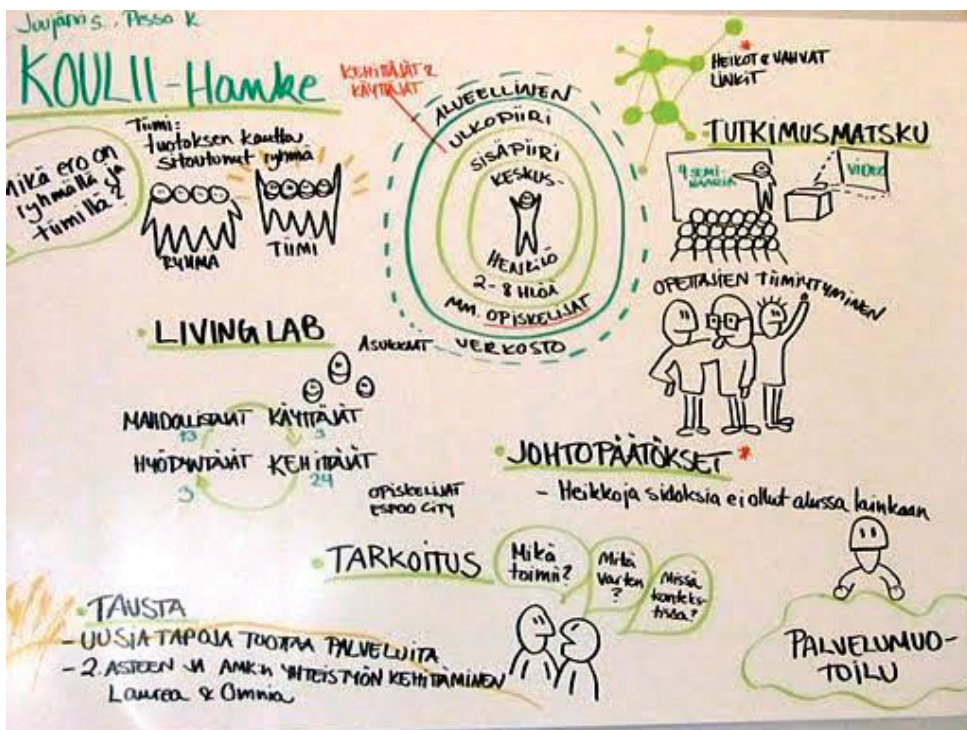 Juujärvi S., Pesso K
KOULII-Hanke
Mikä ero on
ryhmällä ja
tiimillä?
Tiimi:
tuotoksen kautta
sitoutunut ryhmä
RYHMÄ
TIIMI
KEHITTÄJÄT &
KÄYTTÄJÄT
ALUEELLINEN
ULKOPIIRI
SISÄPIIRI
KESKUS-
HENKILÖ
2-8 HLÖÄ
MM. OPISKELIJAT
VERKOSTO
* HEIKOT & VAHVAT
LINKIT
TUTKIMUSMATSKU
4 SEMI-
NAARIA
VIDEO
OPETTAJIEN TIIMIYTYMINEN
LIVING LAB
ASUKKAAT
MAHDOLLISTAJAT KÄYTTÄJÄT
13 3
HYÖDYNTÄJÄT KEHITTÄJÄT
3 24
OPISKELIJAT
ESPOO CITY
JOHTOPÄÄTÖKSET *
- Heikkoja sidoksia ei ollut alussa lainkaan
TARKOITUS
Mikä
toimii?
Mitä
varten
?
Missä
konteks-
tissa?
TAUSTA
- UUSIA TAPOJA TUOTTAA PALVELUITA
- 2. ASTEEN JA AMK:n YHTEISTYÖN KEHITTÄMINEN
Laurea & Omnia
PALVELUMUO-
TOILU